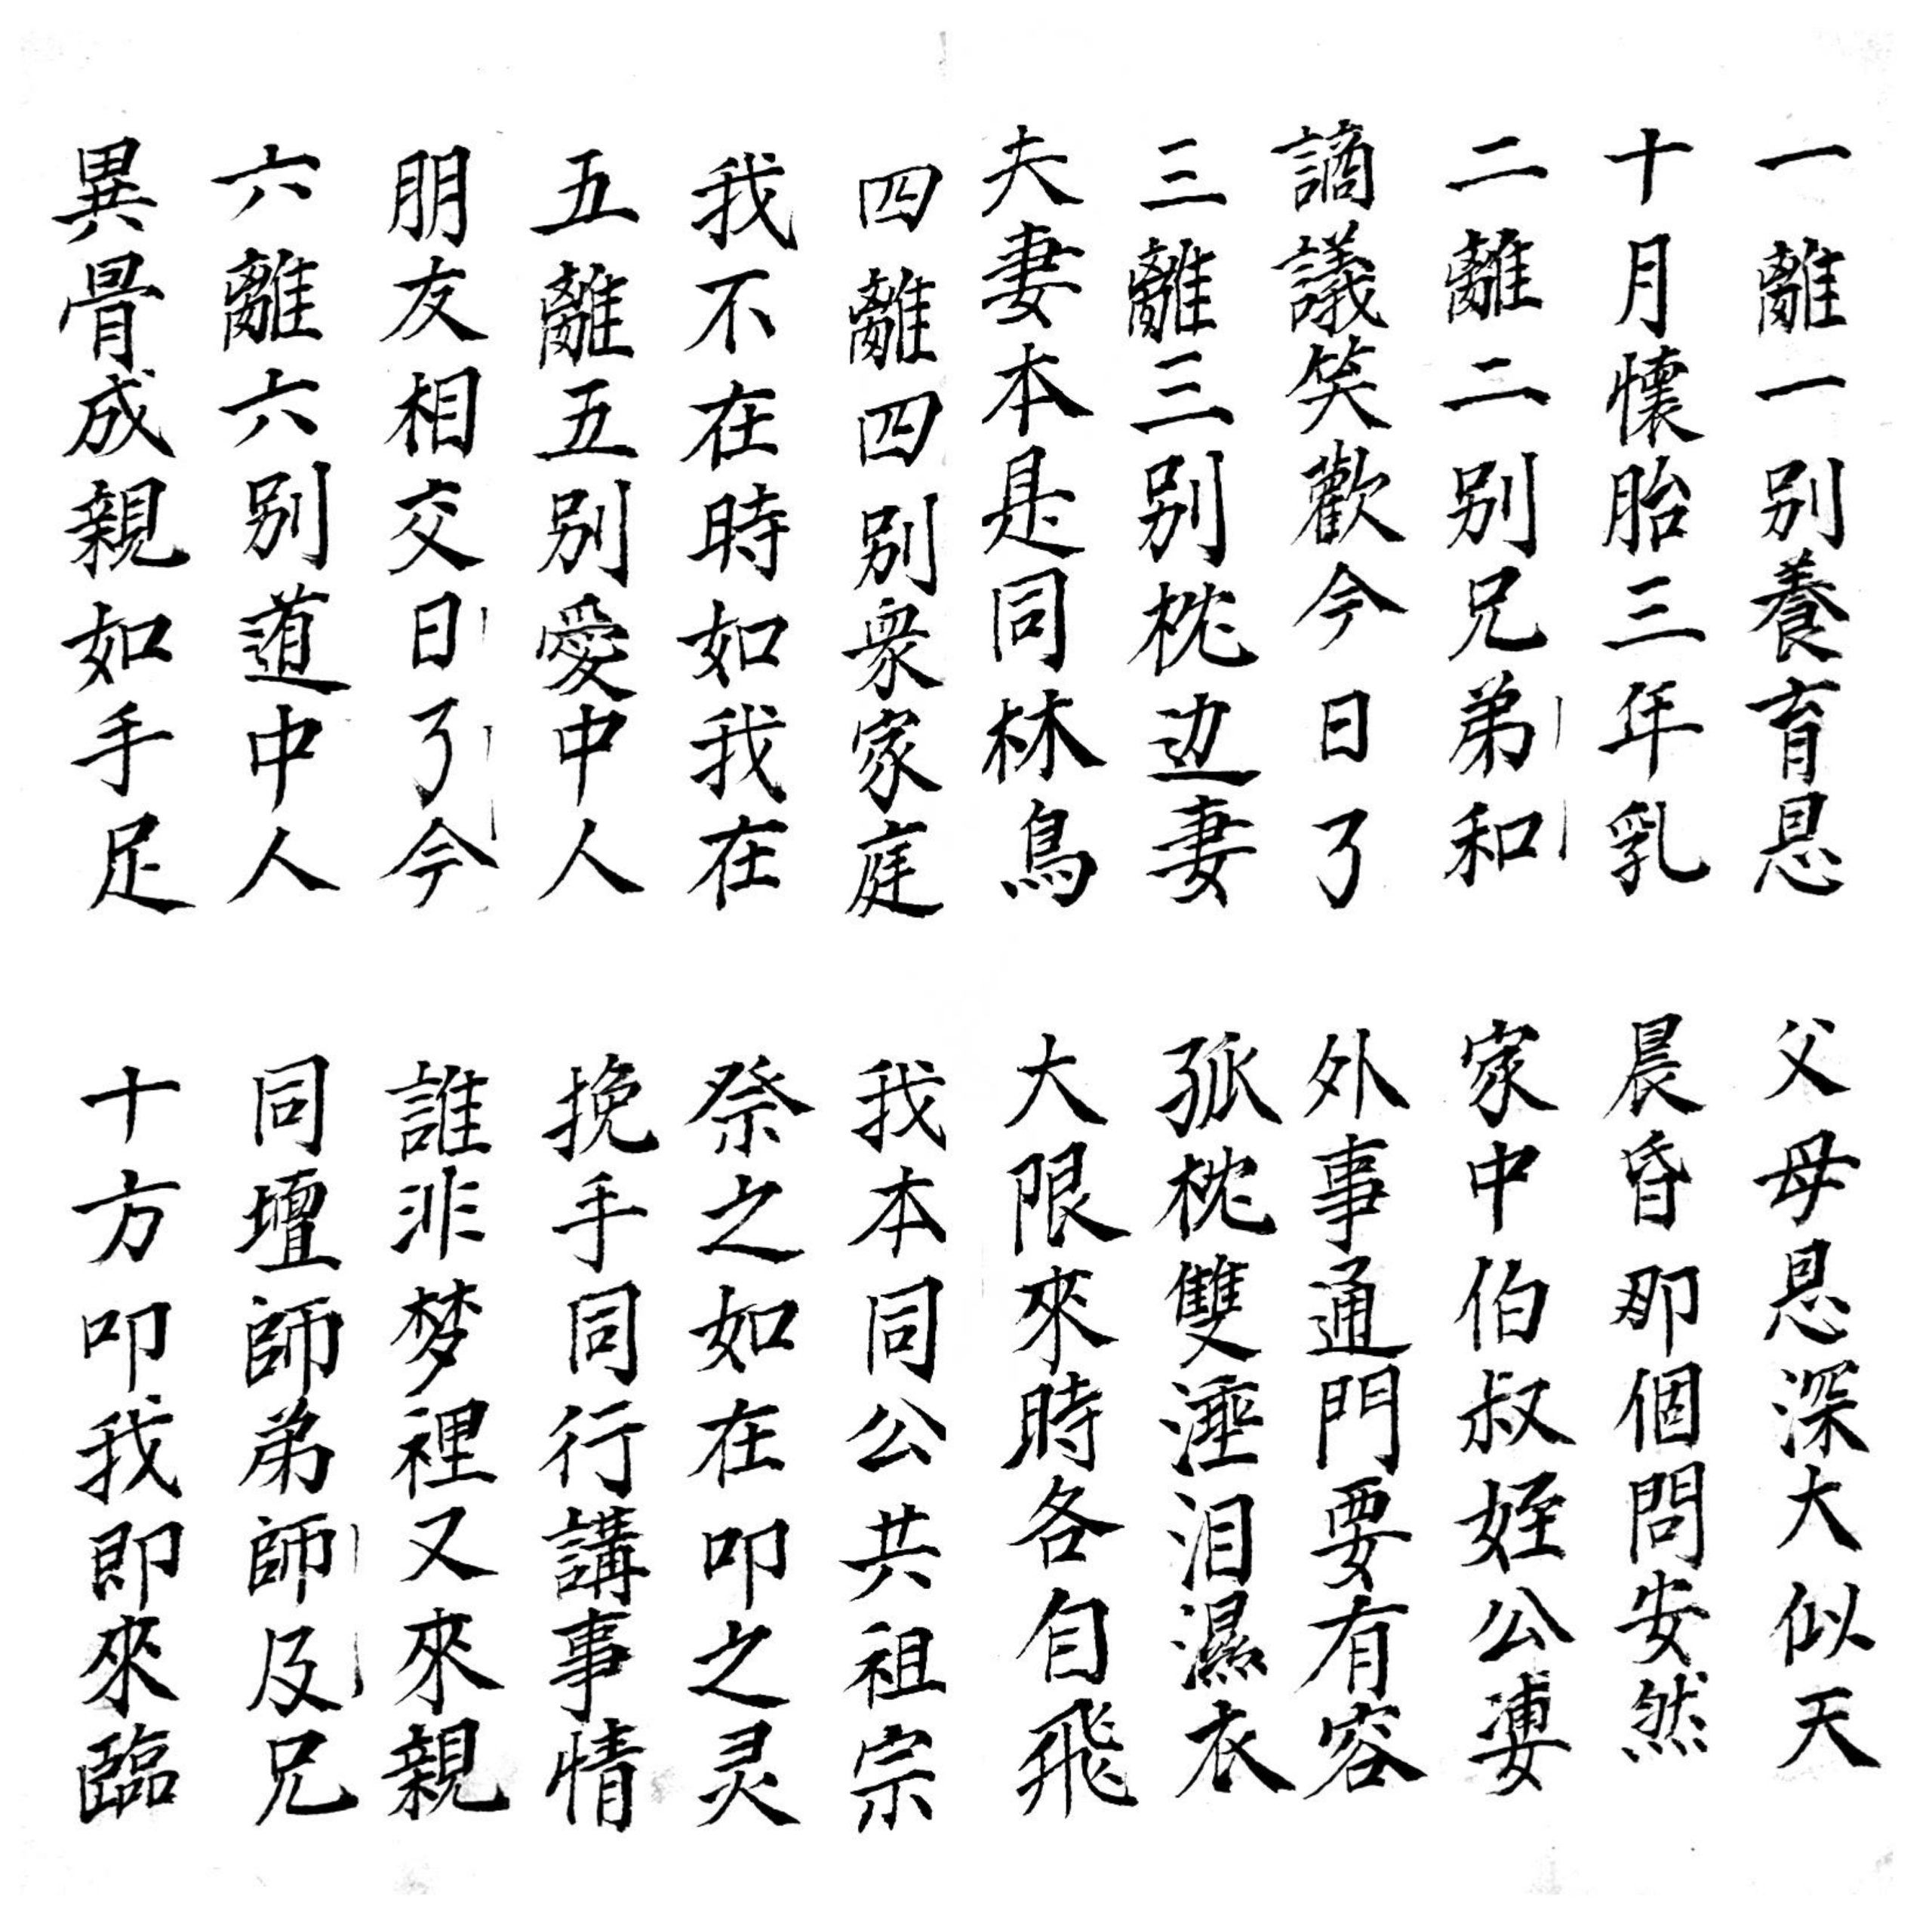 一離一别養育恩
父母恩深大似天
十月懷胎三年乳
晨昏那個問安然
二離二别兄弟和
家中伯叔姪公
謫議笑歡今日了
外事通門要有容
三離三别枕边妻
孤枕雙涶泪濕衣
夫妻本是同林鳥
大限來時各自飛
四離四别衆家庭
我本同公共祖宗
我不在時如我在
祭之如在叩之灵
五離五别愛中人
挽手同行講事情
朋友相交日了今
誰非梦裡又來親
六離六别道中人
同壇師弟師及兄
異骨成親如手足
十方叩我即來臨